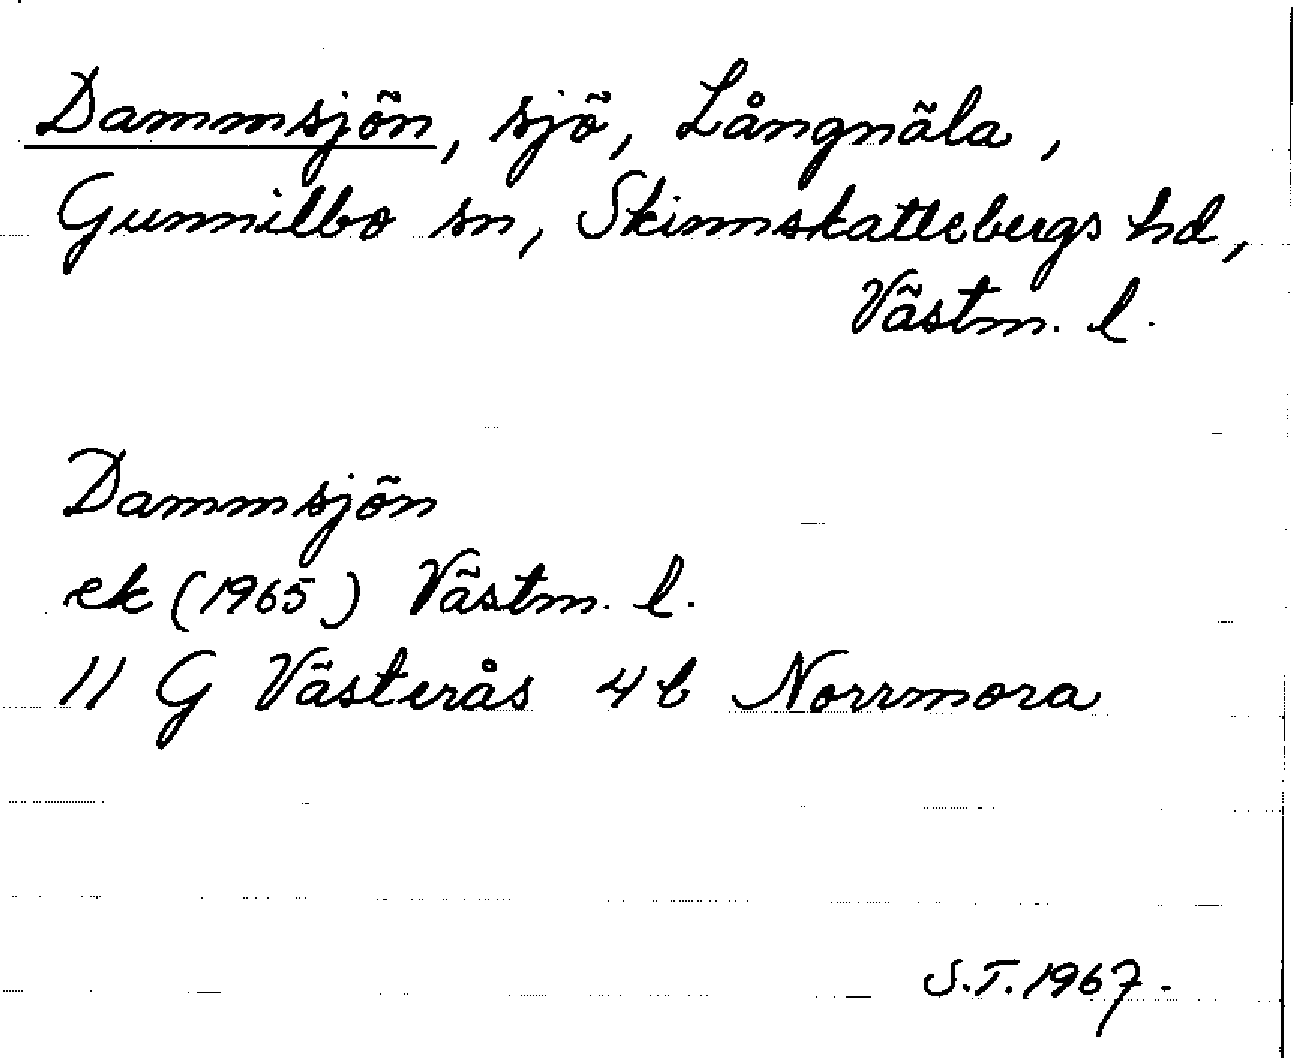 Dammsjön, sjö, Långnäla,
Gunnilbo sn, Skinnskattebergs hd,
Västm. l.
Dammsjön
ek (1965) Västm. l.
11 G Västerås 4 b Norrmora
S.T. 1967.